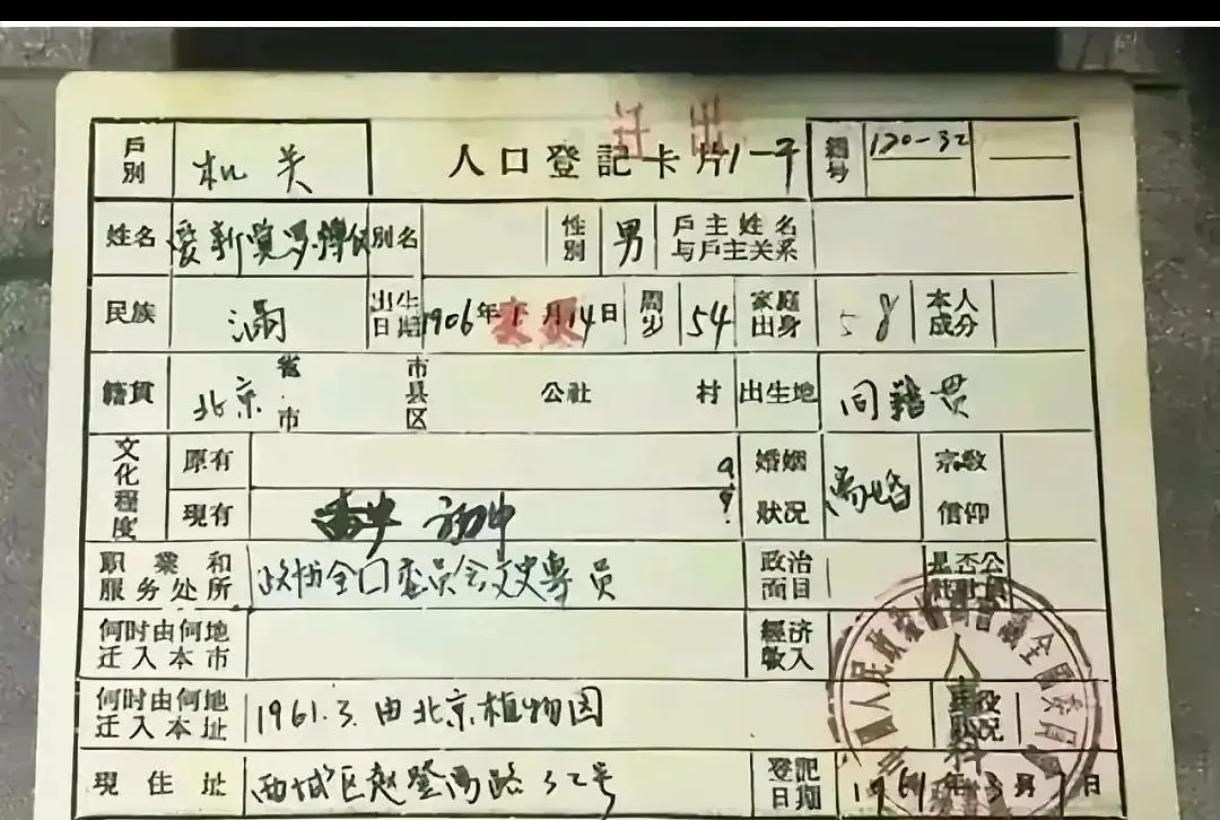 迁出
戶別 机关 人口登記卡片 1-干 編号 120-32
姓名 爱新觉罗溥仪 別名 性別 男 戶主姓名与戶主关系
民族 满 出生日期 1906年1月14日 周岁 54 家庭出身 58 本人成分
籍貫 北京 省市 市县区 公社 村 出生地 同籍贯
文化程度 原有 婚姻狀况 离婚 宗教信仰
現有 初中
职業和服务处所 政协全囗委员会文史專员 政治面目 是否公
何时由何地迁入本市 經济收入
何时由何地迁入本址 1961.3.由北京植物园
現住址 西城区赵登禹路32号 登記日期 1961年3月 日
人民政治協商會議全國委員